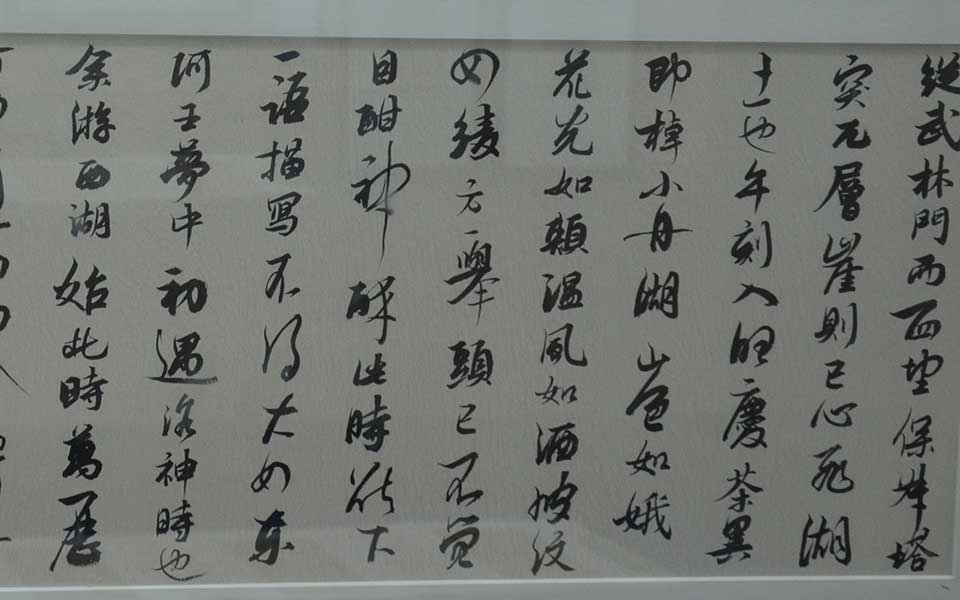 從武林門而西望保叔塔
突兀層崖則已心飛湖
上也午刻入昭慶茶畢
即棹小舟湖山色如娥
花光如頰溫風如酒波紋
如綾方一舉頭已不覺
目酣神醉此時欲下
一語描寫不得大如東
阿王夢中初遇洛神時也
余游西湖始此時萬歷